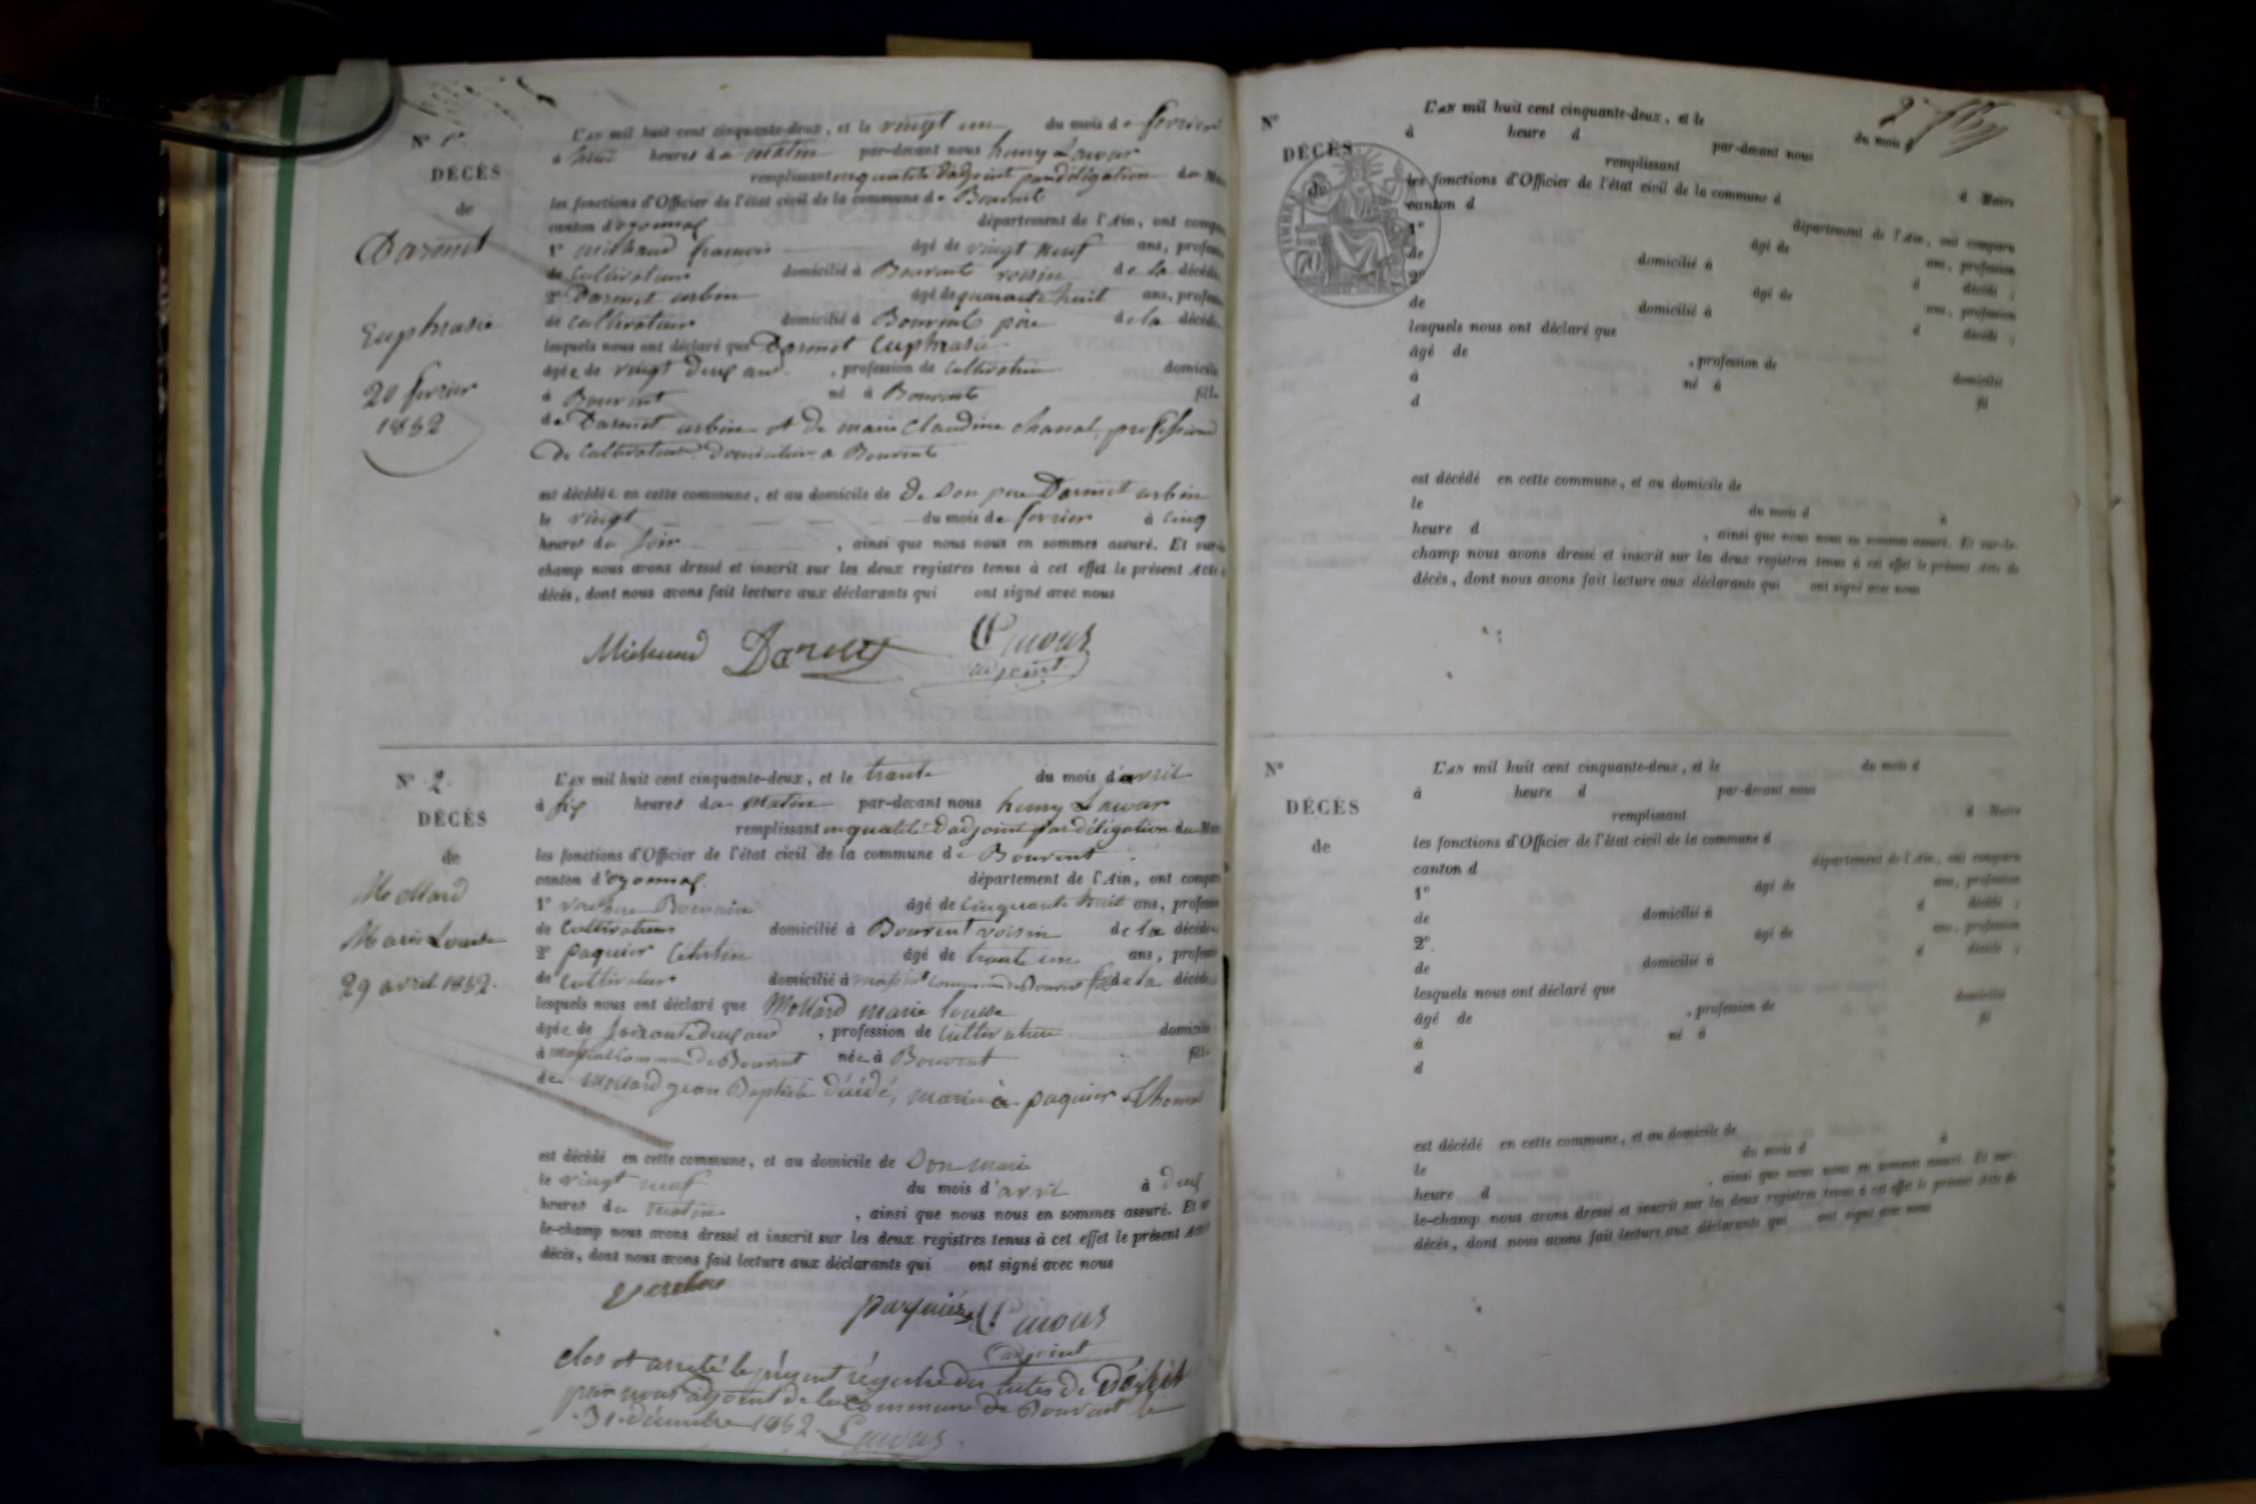 N° 1er
DÉCÈS
de
Darmet
Euphrasie
20 fevrier
1852
L'AN mil huit cent cinquante-deux, et le vingt un du mois de fevrier
à huit heures du matin par-devant nous henry
remplissant en qualité d'adjoint par déligation du Maire
les fonctions d'Officier de l'état civil de la commune de Bouvent
canton d'oyonnax département de l'Ain, ont comparu
1° michaud francois âgé de vingt neuf ans, profession
de Cultivateur domicilié à Bouvent voisin de la décédée
2° Darmet urbin âgé de quarante huit ans, profession
de cultivateur domicilié à Bouvent père de la décédée
lesquels nous ont déclaré que Darmet Euphrasie
âgée de vingt deux ans, profession de Cultivatrice domicilié
à Bouvent né à Bouvent fille
de Darmet urbin et de marie Claudine Chanal, profession
De Cultivateur Domiciliés a Bouvent
est décédée en cette commune, et au domicile de De Son père Darmet urbin
le vingt du mois de fevrier à cinq
heures du soir, ainsi que nous nous en sommes assuré. Et sur-le-
champ nous avons dressé et inscrit sur les deux registres tenus à cet effet le présent Acte
décès, dont nous avons fait lecture aux déclarants qui ont signé avec nous
Michaud Darmet
adjoint
N° 2.
DÉCÈS
de
Mollard
Marie Louise
29 avril 1852.
L'AN mil huit cent cinquante-deux, et le trante du mois d'avril
à six heures du matin par-devant nous henry
remplissant en qualité d'adjoint par déligation du Maire
les fonctions d'Officier de l'état civil de la commune de Bouvent
canton d'oyonnax département de l'Ain, ont comparu
1° âgé de Cinquante huit ans, profession
de Cultivateur domicilié à Bouvent voisin de la décédée
2° paquier âgé de trante un ans, profession
de Cultivateur domicilié à commune de Bouvent fils de la décédée
lesquels nous ont déclaré que Mollard marie louise
âgée de Soixante deux ans, profession de Cultivatrice domicilié
à commune de Bouvent née à Bouvent fille
de Mollard jean Baptiste décidé, marié à paquier
est décédé en cette commune, et au domicile de Son mari
le vingt neuf du mois d'avril à deux
heures du matin, ainsi que nous nous en sommes assuré. Et sur
le-champ nous avons dressé et inscrit sur les deux registres tenus à cet effet le présent Acte
décès, dont nous avons fait lecture aux déclarants qui ont signé avec nous
paquier
adjoint
clos et arreté le présent régistre des actes de Décès
par nous adjoint de la commune de Bouvent le
31 décembre 1852.
N°
DÉCÈS
de
2
L'AN mil huit cent cinquante-deux, et le du mois d
à heure d par-devant nous
remplissant
les fonctions d'Officier de l'état civil de la commune d d Maire
canton d département de l'Ain, ont comparu
1° âgé de ans, profession
de domicilié à d décédé;
2° âgé de ans, profession
de domicilié à d décédé;
lesquels nous ont déclaré que
âgé de, profession de domicilié
à né à fil
d
est décédé en cette commune, et au domicile de
le du mois d à
heure d, ainsi que nous nous en sommes assuré. Et sur-le-
champ nous avons dressé et inscrit sur les deux registres tenus à cet effet le présent Acte de
décès, dont nous avons fait lecture aux déclarants qui ont signé avec nous
N°
DÉCÈS
de
L'AN mil huit cent cinquante-deux, et le du mois d
à heure d par-devant nous
remplissant d Maire
les fonctions d'Officier de l'état civil de la commune d
canton d département de l'Ain, ont comparu
1° âgé de ans, profession
de domicilié à d décédé;
2° âgé de ans, profession
de domicilié à d décédé;
lesquels nous ont déclaré que
âgé de, profession de domicilié
à né à fil
d
est décédé en cette commune, et au domicile de
le du mois d à
heure d, ainsi que nous nous en sommes assuré. Et sur-
le-champ nous avons dressé et inscrit sur les deux registres tenus à cet effet le présent Acte de
décès, dont nous avons fait lecture aux déclarants qui ont signé avec nous